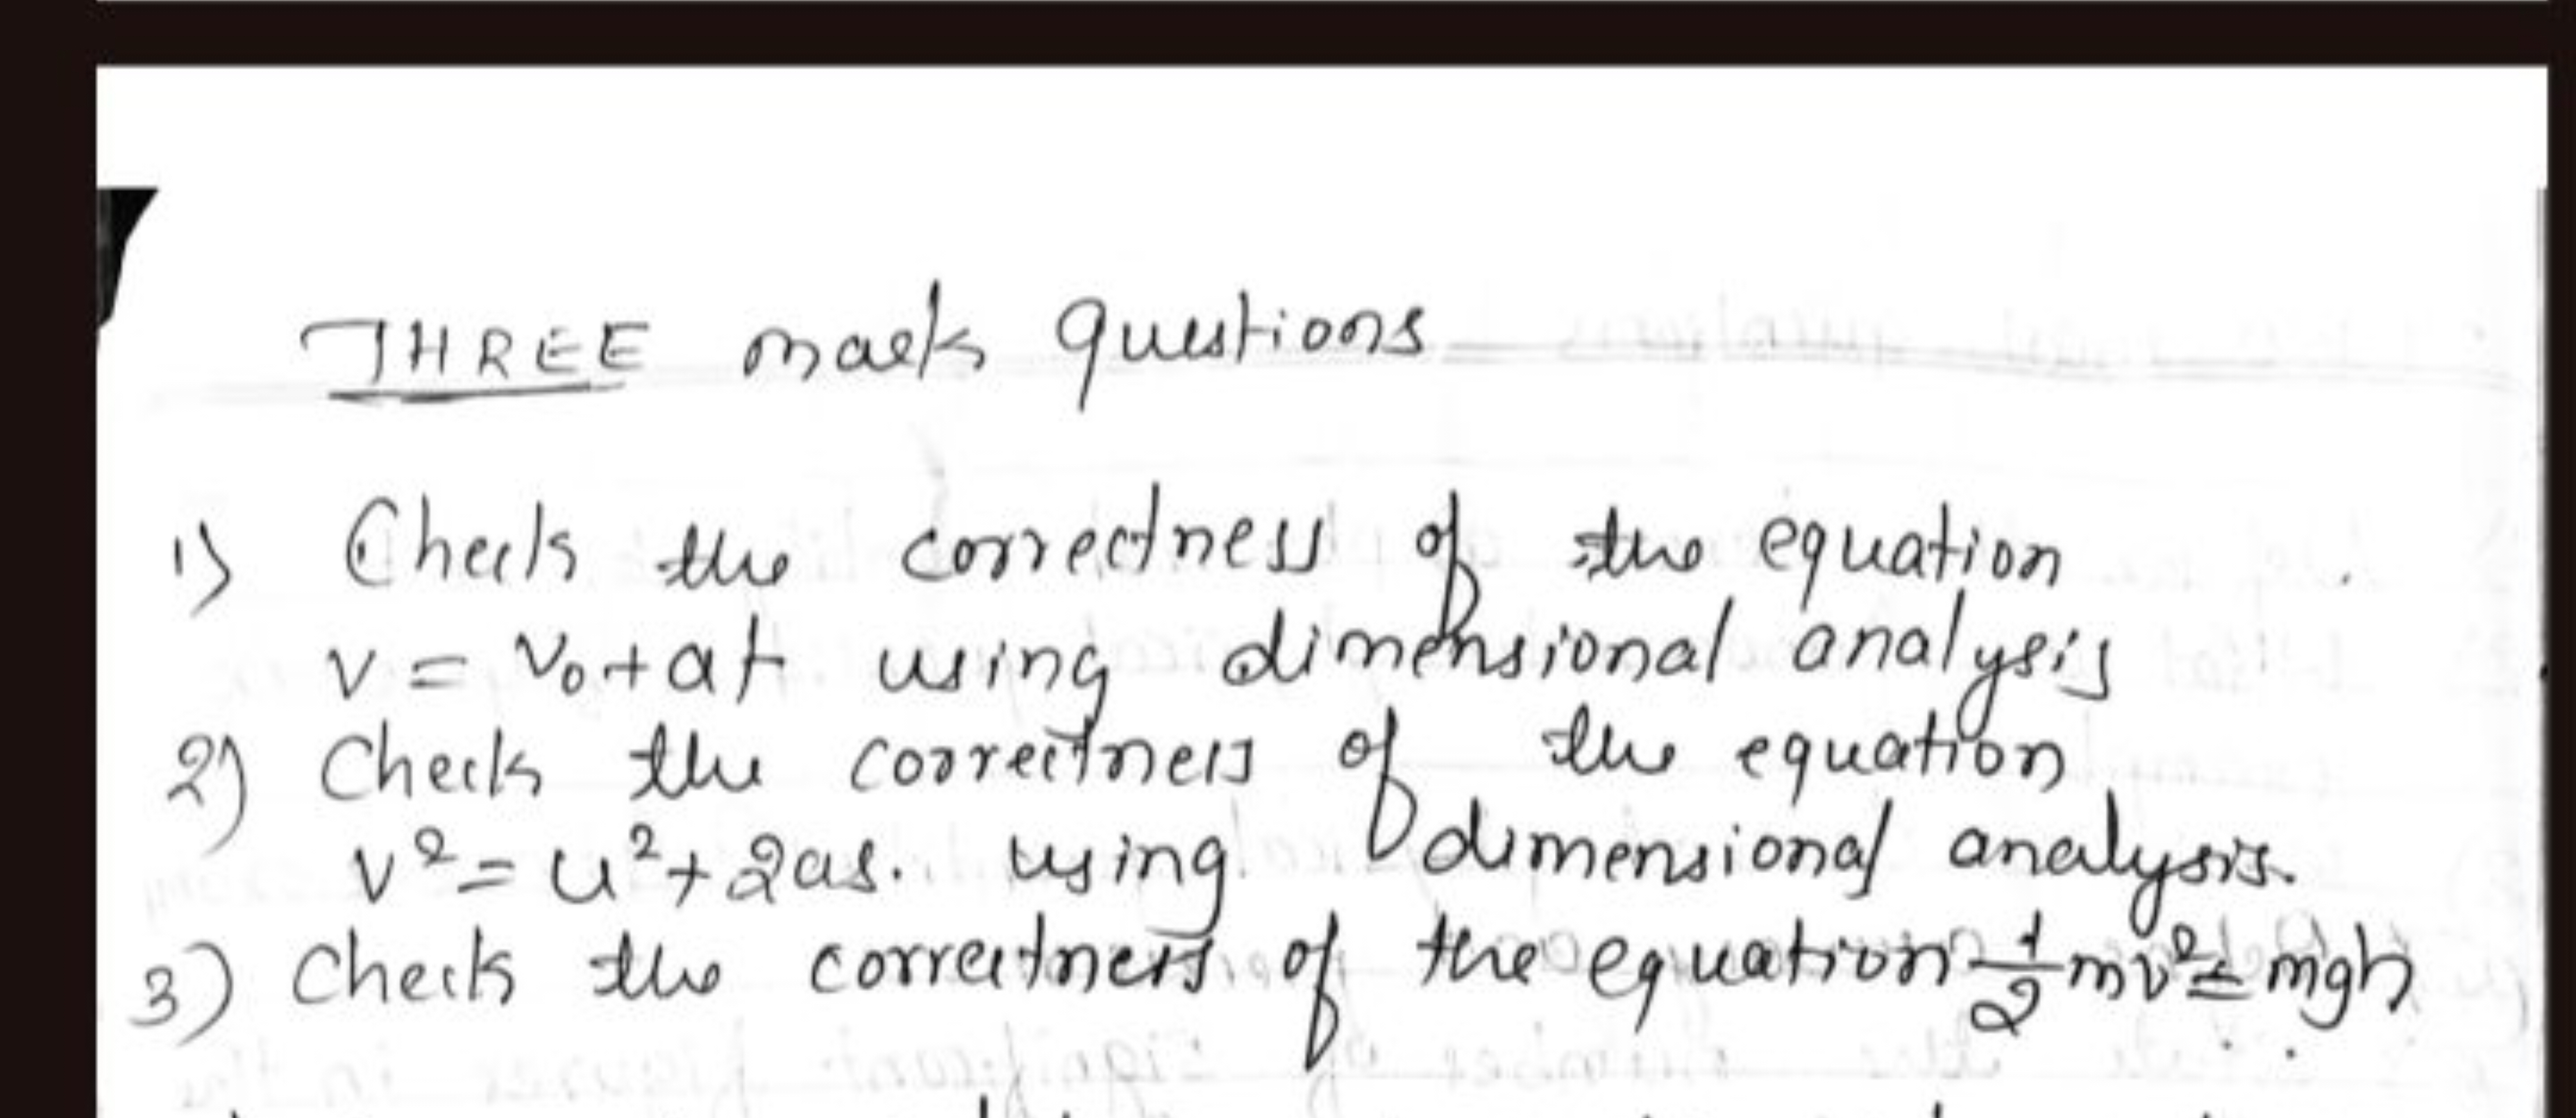 THREE mark questions
1) Check the correctness of the equation
v = v₀ + at using dimensional analysis
2) Check the correctness of the equation
v² = u² + 2as. using dimensional analysis.
3) Check the correctness of the equation ½mv² = mgh